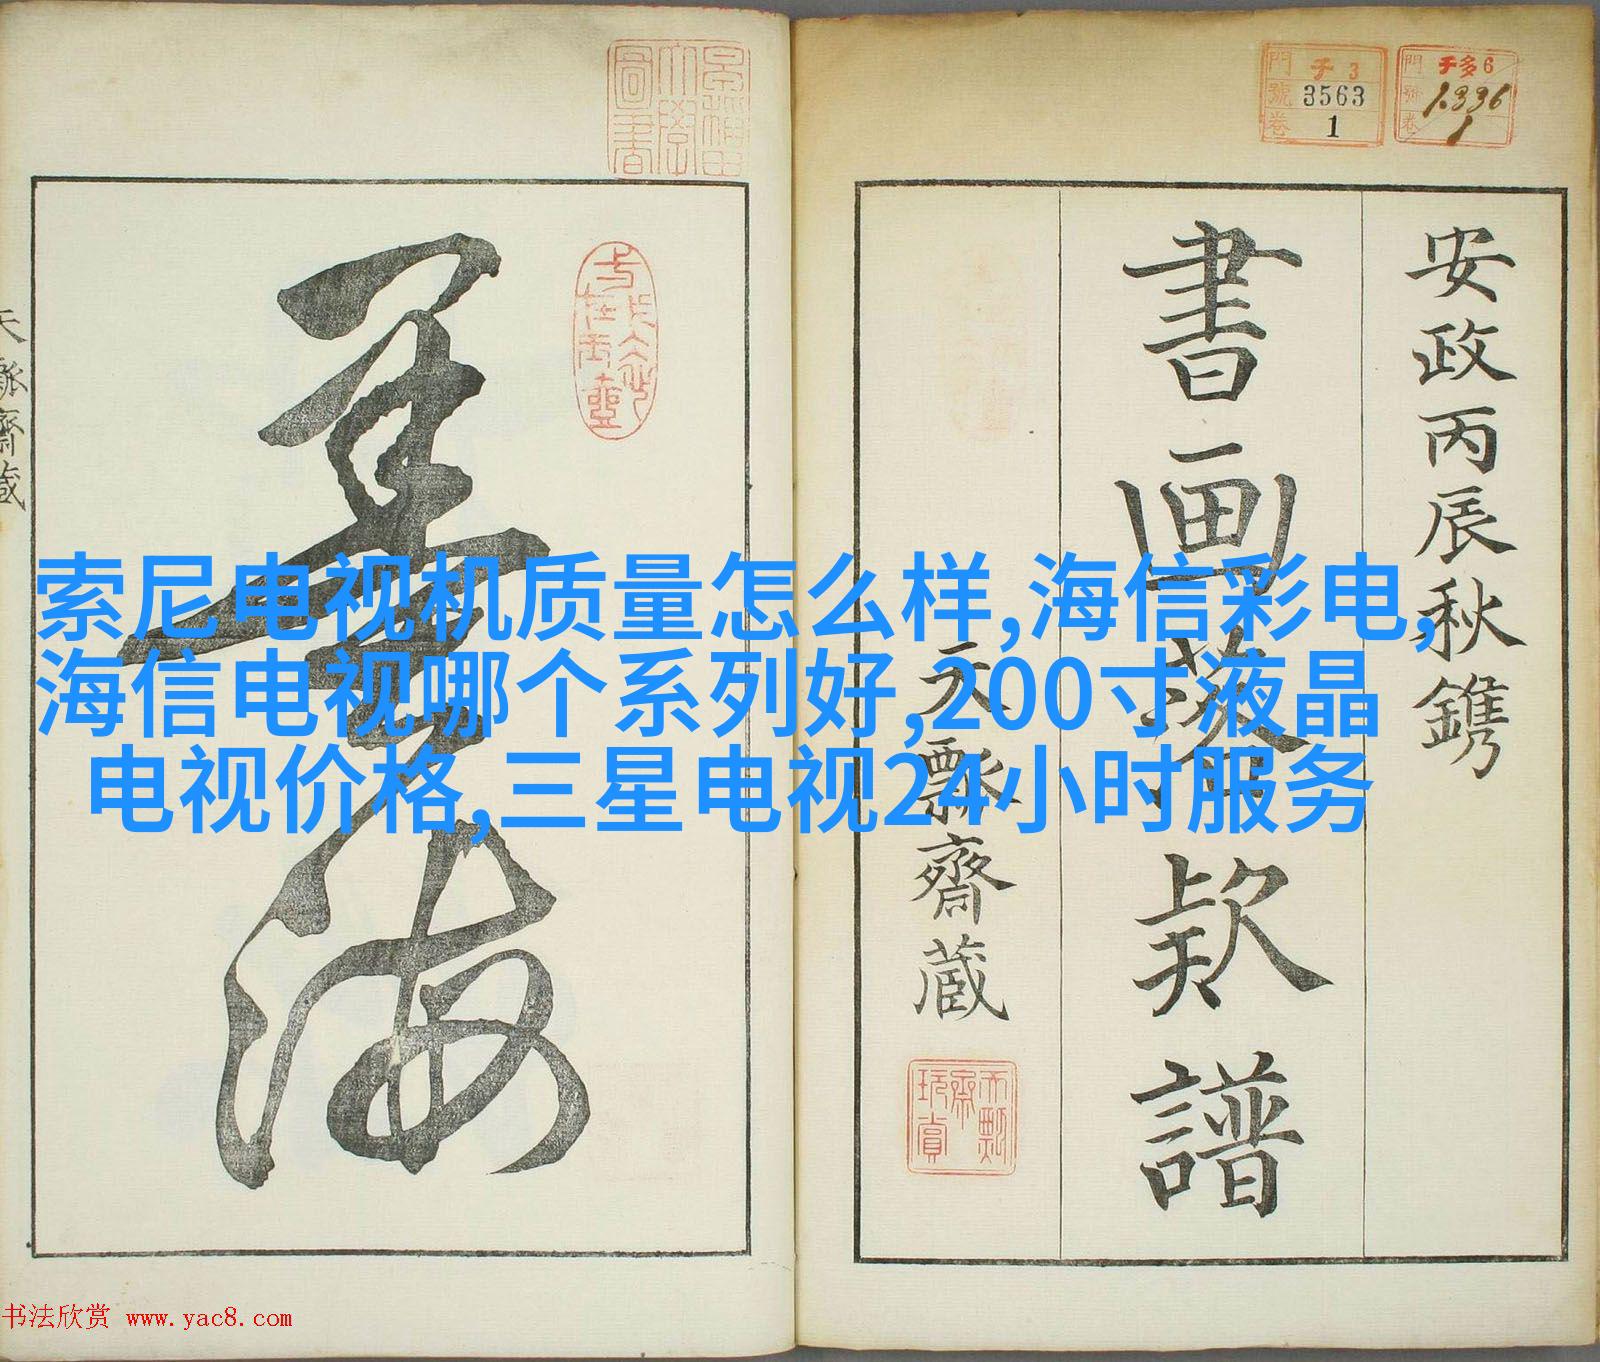 安政丙辰秋鐫
書画落款譜
天瓢齋蔵
索尼电视机质量怎么样,海信彩电,
海信电视哪个系列好,200寸液晶
电视价格,三星电视24小时服务
門 チ 3
號 3563
卷 1
門 チ多6
號 1336
卷 1
墨海
天瓢齋蔵
书法欣赏 www.yac8.com